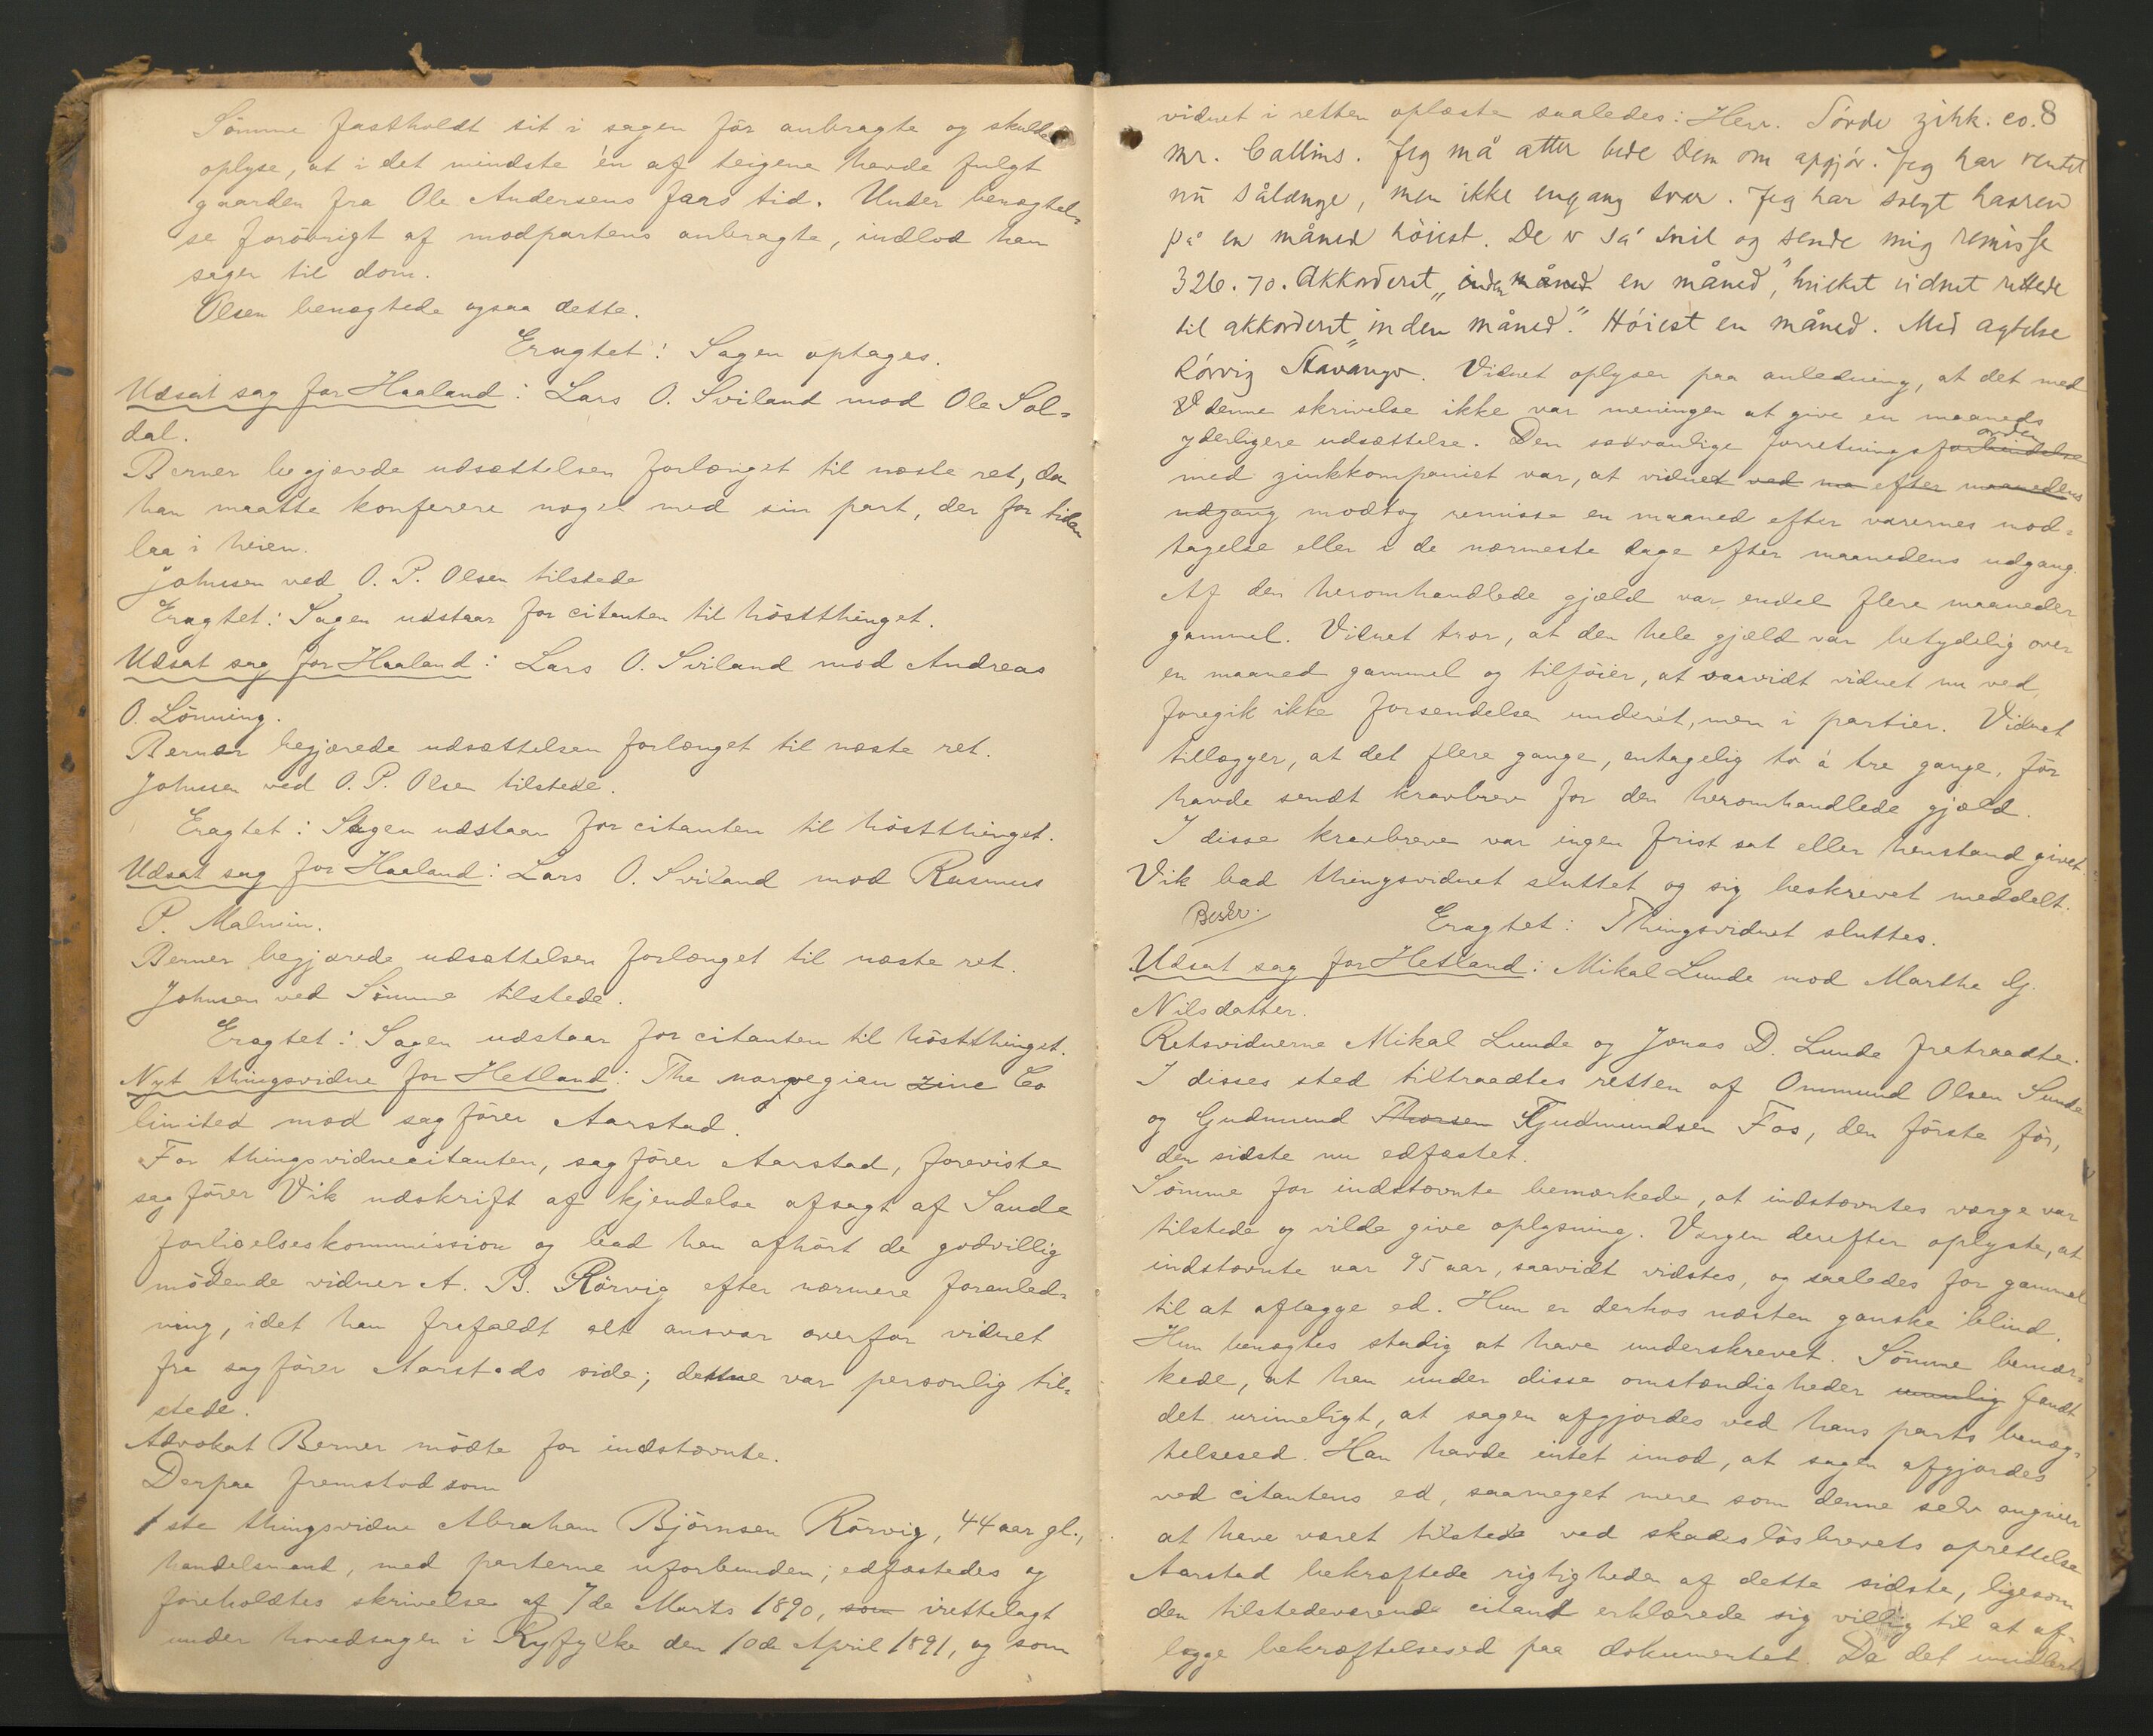 Sömme fastholdt sit i sagen för anbragte og skulde
oplyse, at i det mindste én af teigene havde fulgt
gaarden fra Ole Andersens faas tid. Under benægtel-
se forövrigt af modpartens anbragte, indlod han
sagen til dom.
Olsen benægtede ogsaa dette.
Eragtet: Sagen optages.
Udsat sag for Haaland: Lars O. Sviland mod Ole Sol-
dal.
Berner begjærede udsættelsen forlænget til næste ret, da
han maatte konferere noget med sin part, der for tiden
laa i heien.
Johnsen ved O. P. Olsen tilstede
Eragtet: Sagen udstaar for citanten til höstthinget.
Udsat sag for Haaland: Lars O. Sviland mod Andreas
O. Lönning.
Berner begjærede udsættelsen forlænget til næste ret.
Johnsen ved O. P. Olsen tilstede.
Eragtet: Sagen udstaar for citanten til höstthinget.
Udsat sag for Haaland: Lars O. Sviland mod Rasmus
P. Malmin.
Berner begjærede udsættelsen forlænget til næste ret.
Johnsen ved Sömme tilstede.
Eragtet: Sagen udstaar for citanten til höstthinget.
Nyt thingsvidne for Hetland: The norvegian zinc Co
limited mod sagförer Aarstad.
For thingsvidnecitanten, sagförer Aarstad, foreviste
sagförer Vik udskrift af kjendelse afsagt af Sande
forligelseskommmission og bad han afhört de godvillig
mödende vidner A. B. Rörvig efter nærmere foranled-
ning, idet han frafaldt alt ansvar overfor vidnet
fra sagförer Aarstads side; denne var personlig til-
stede.
Advokat Berner mödte for indstævnte.
Derpaa fremstod som
1ste thingsvidne Abraham Björnsen Rörvig, 44 aar gl.,
handelsmand, med parterne uforbunden; edfæstedes og
foreholdtes skrivelse af 7de Marts 1890, som irettelagt
under hovedsagen i Ryfylke den 10de April 1891, og som
8
vidnet i retten oplæste saaledes: Herr. Sörde zink. co.
mr. Callins. Jeg må atter bede Dem om opgjör. Jeg har ventet
nu sålænge, men ikke engang svar. Jeg har solgt varen
på en måned höiest. De er så snil og sende mig remisse
326.70. Akkorderet „inden måned en måned", hvilket vidnet rettede
til akkorderet „inden måned." Höiest en måned. Med agtelse
Rörvig Stavanger. Vidnet oplyser paa anledning, at det med
denne skrivelse ikke var meningen at give en maaneds
yderligere udsættelse. Den sædvanlige forretningsforbindelse orden
med zinkkompaniet var, at vidnet ved ma efter maanedens
udgang modtog remisse en maaned efter varernes mod-
tagelse eller i de nærmeste dage efter maanedens udgang.
Af den heromhandlede gjæld var endel flere maaneder
gammel. Vidnet tror, at den hele gjæld var betydelig over
en maaned gammel og tilföier, at saavidt vidnet nu ved,
foregik ikke forsendelsen underét, men i partier. Vidnet
tillægger, at det flere gange, antagelig to á tre gange, för
havde sendt kravbrev for den heromhandlede gjæld.
I disse kravbreve var ingen frist sat eller henstand givet.
Vik bad thingsvidnet sluttet og sig beskrevet meddelt.
Beskr.
Eragtet: Thingsvidnet sluttes.
Udsat sag for Hetland: Mikal Lunde mod Marthe G.
Nilsdatter.
Retsvidnerne Mikal Lunde og Jonas D. Lunde fratraadte.
I disses sted tiltraadtes retten af Ommund Olsen Lunde
og Gudmund Thorsen Gudmundsen Fos, den förste för,
den sidste nu edfæstet.
Sömme for indstævnte bemærkede, at indstævntes værge var
tilstede og vilde give oplysning. Værgen derefter oplyste, at
indstævnte var 95 aar, saavidt vidstes, og saaledes for gammel
til at aflægge ed. Hun er derhos næsten ganske blind.
Hun benægtes stadig at have underskrevet. Sömme bemær-
kede, at han under disse omstændigheder umulig fandt
det urimeligt, at sagen afgjordes ved hans parts benæg-
telsesed. Han havde intet imod, at sagen afgjordes
ved citantens ed, saameget mere som denne selv angiver
at have været tilstede ved skadeslösbrevets oprettelse
Aarstad bekræftede rigtigheden af dette sidste, ligesom
den tilstedeværende citant erklærede sig villig til at af-
lægge bekræftelsesed paa dokumentet. Da det imidlert